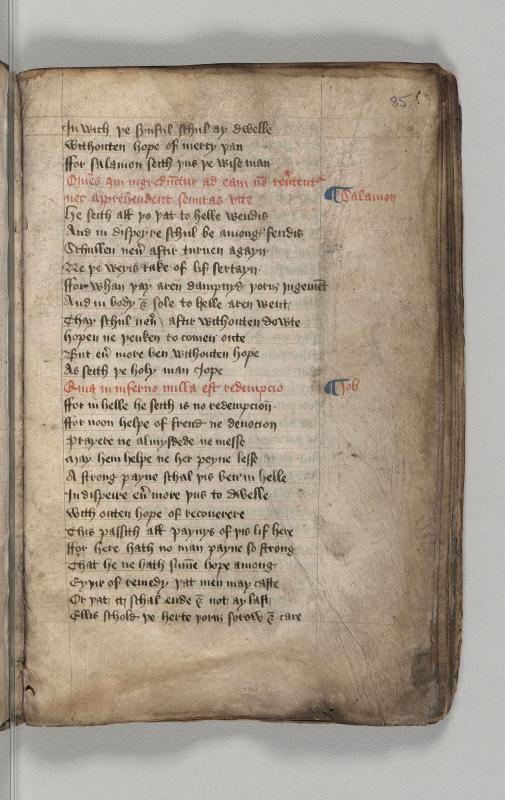 85
In wich þe synful schul ay dwelle
Withouten hope of mercy þan
ffor Salamon seith þus þe wise man
Om̄es qui ingrediūtur ad eam nō reu͛tentr
nec apprehendent semitas vite
¶ Salamon
He seith all þo þat to helle wendis
And in dispeyre schul be among fendis
Schullen neu͛ aftir turnen agayn
Ne þe weyis take of lif sertayn
ffor whan þay aren dampnyd þorw iugemēt
And in body & sole to helle aren went
Thay schul neu͛ aftir withouten dowte
hopen ne þenken to comen oute
But eu͛ more ben withouten hope
As seith þe holy man Jope
Quia in inferno nulla est redempcio
¶ Job
ffor in helle he seith is no redempcion
ffor noon helpe of frend ne deuocion
Prayere ne almysdede ne messe
May hem helpe ne her peyne lesse
A strong payne schal þis ben in helle
In dispeire eu͛ more þus to dwelle
With outen hope of recouerere
This passith all paynys of þis lif here
ffor here hath no man payne so strong
That he ne hath sum̄e hope among
Eyþir of remedy þat men may caste
Or þat it schal ende & not ay last
Ellis schold þe herte þorw sorow & care